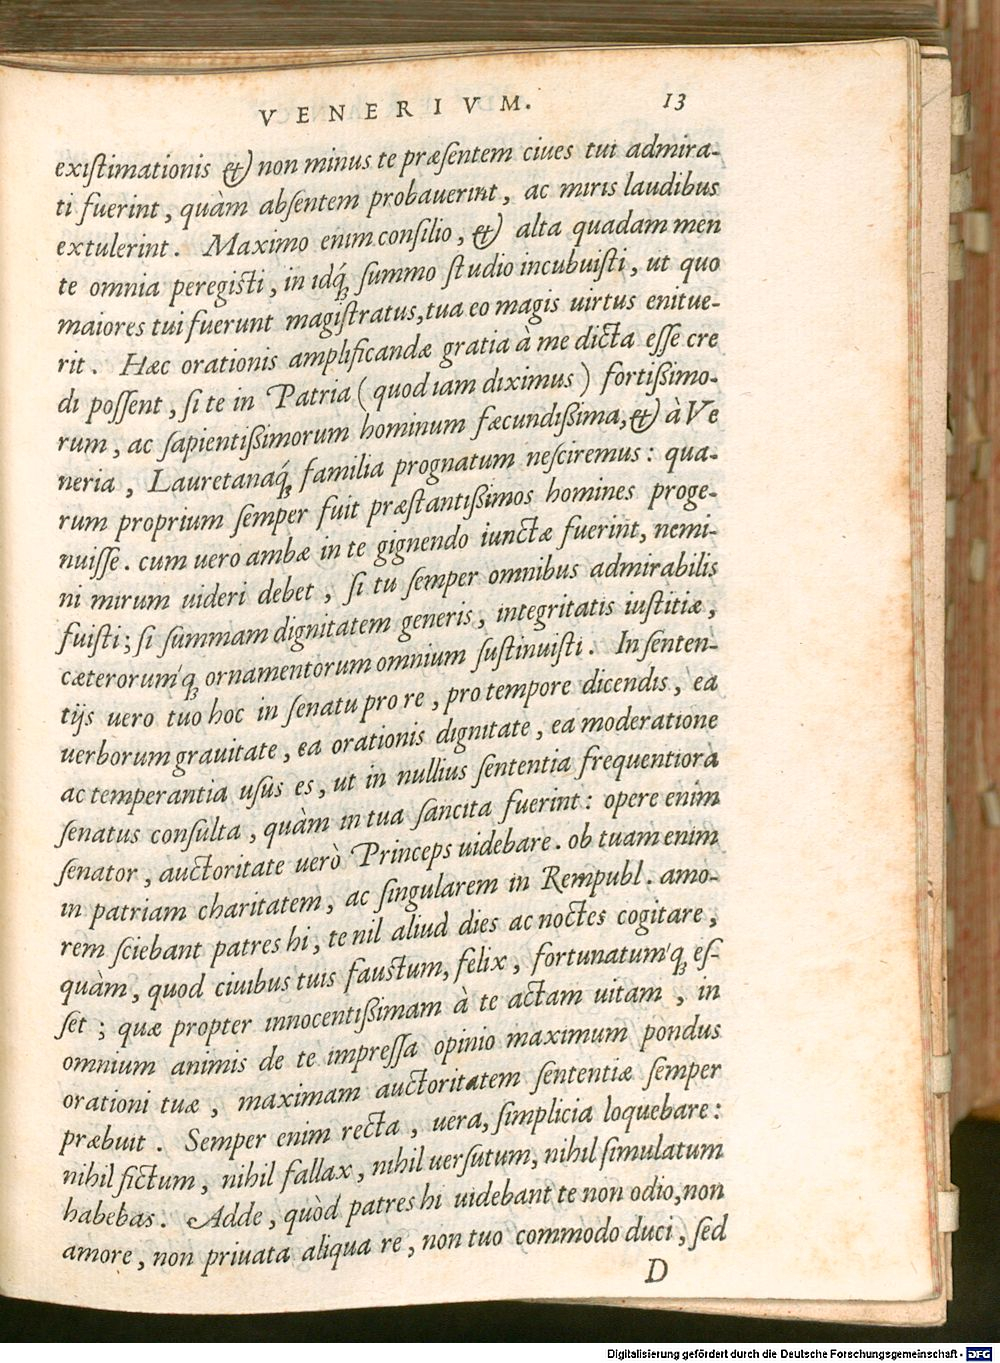 VENERIVM. 13
exiſtimationis & non minus te præſentem ciues tui admira-
ti fuerint, quàm abſentem probauerint, ac miris laudibus
extulerint. Maximo enim conſilio, & alta quadam men
te omnia peregiſti, in idq́ꝫ ſummo ſtudio incubuiſti, ut quo
maiores tui fuerunt magiſtratus, tua eo magis uirtus enitue-
rit. Hæc orationis amplificandæ gratia à me dicta eſſe cre
di poſſent, ſi te in Patria (quod iam diximus) fortißimo-
rum, ac ſapientißimorum hominum fæcundißima, & à Ve
neria, Lauretanaq́ꝫ familia prognatum neſciremus: qua-
rum proprium ſemper fuit præſtantißimos homines proge-
nuiſſe. cum uero ambæ in te gignendo iunctæ fuerint, nemi-
ni mirum uideri debet, ſi tu ſemper omnibus admirabilis
fuiſti; ſi ſummam dignitatem generis, integritatis iuſtitiæ,
cæterorum'qꝫ ornamentorum omnium ſuſtinuiſti. In ſenten-
tijs uero tuo hoc in ſenatu pro re, pro tempore dicendis, ea
uerborum grauitate, ea orationis dignitate, ea moderatione
ac temperantia uſus es, ut in nullius ſententia frequentiora
ſenatus conſulta, quàm in tua ſancita fuerint: opere enim
ſenator, auctoritate uerò Princeps uidebare. ob tuam enim
in patriam charitatem, ac ſingularem in Rempubl. amo-
rem ſciebant patres hi, te nil aliud dies ac noctes cogitare,
quàm, quod ciuibus tuis fauſtum, felix, fortunatum'qꝫ eſ-
ſet; quæ propter innocentißimam à te actam uitam, in
omnium animis de te impreſſa opinio maximum pondus
orationi tuæ, maximam auctoritatem ſententiæ ſemper
præbuit. Semper enim recta, uera, ſimplicia loquebare:
nihil fictum, nihil fallax, nihil uerſutum, nihil ſimulatum
habebas. Adde, quòd patres hi uidebant te non odio, non
amore, non priuata aliqua re, non tuo commodo duci, ſed
D
Digitalisierung gefördert durch die Deutsche Forschungsgemeinschaft - DFG